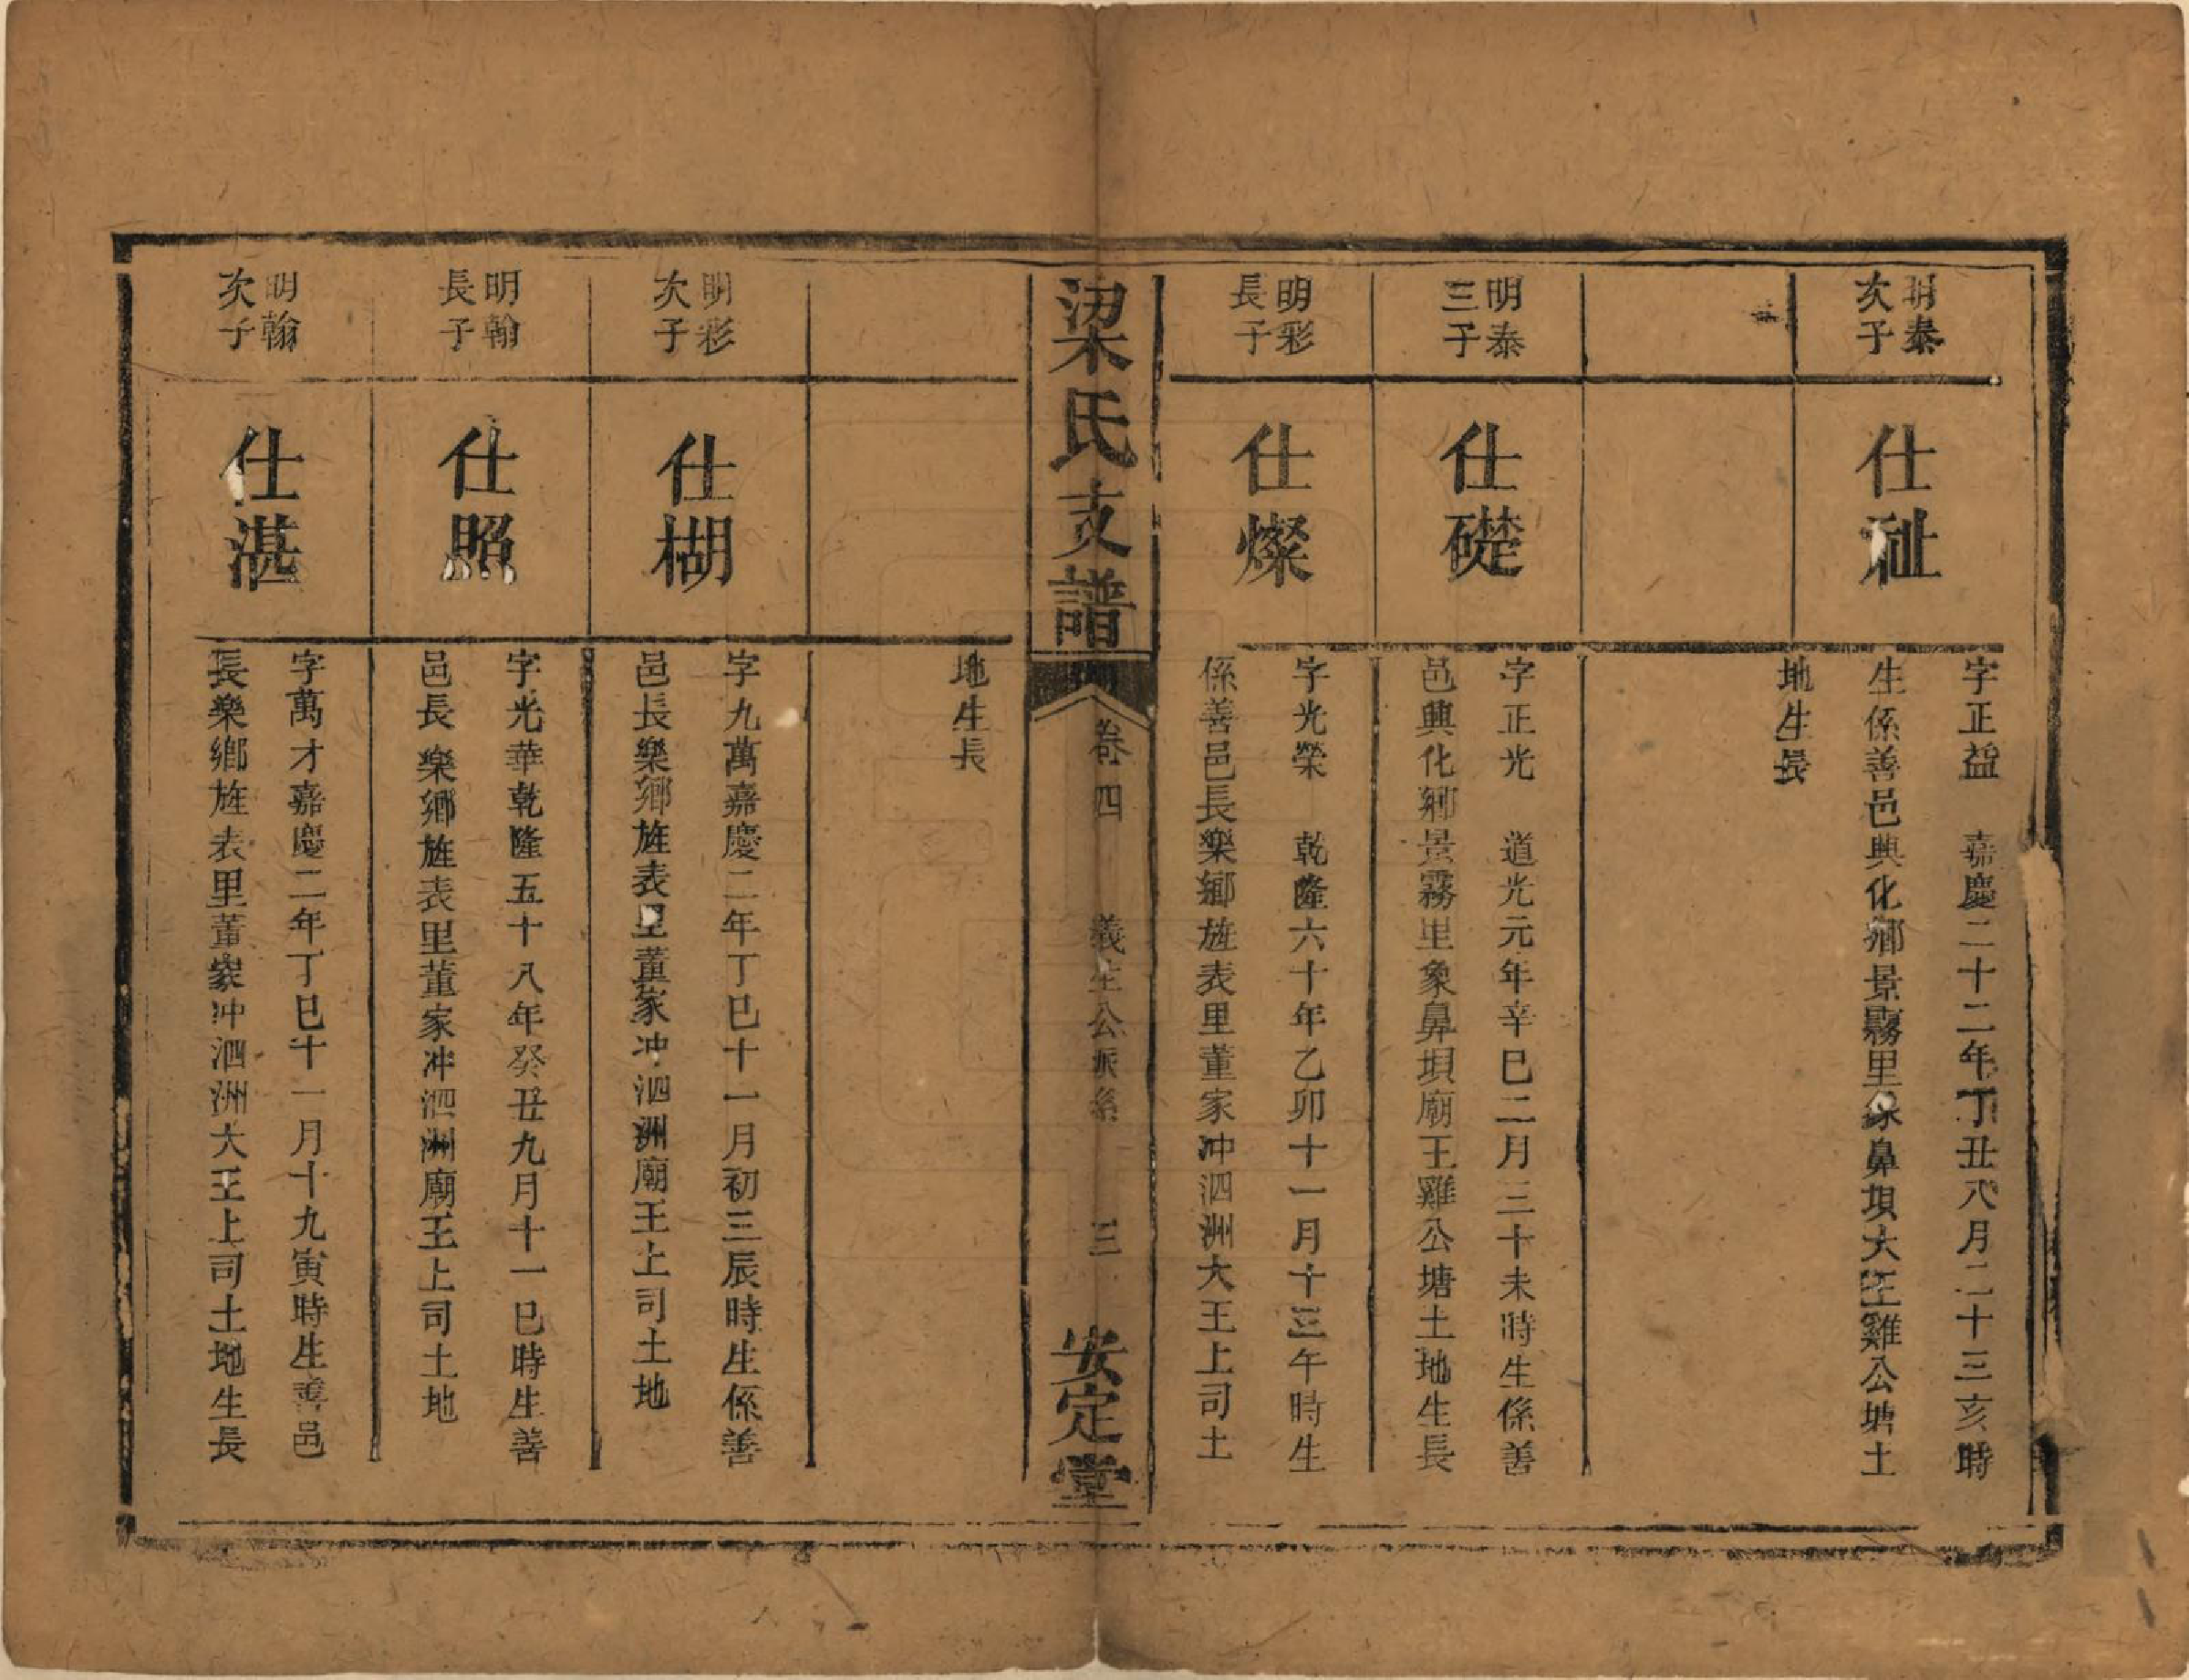 明泰
次子
仕祉
字正益　嘉慶二十二年丁丑八月二十三亥時
生係善邑興化鄉景霧里象鼻垻大王雞公塘土
地生長
明泰
三子
仕礎
字正光　道光元年辛巳二月三十未時生係善
邑興化鄉景霧里象鼻垻廟王雞公塘土地生長
明彩
長子
仕燦
字光榮　乾隆六十年乙卯十一月十三午時生
係善邑長樂鄉旌表里董家冲泗洲大王上司土
梁氏支譜
卷四　義生公派系　三
安定堂
地生長
明彩
次子
仕楜
字九萬嘉慶二年丁巳十一月初三辰時生係善
邑長樂鄉旌表里董家冲泗洲廟王上司土地
明翰
長子
仕照
字光華乾隆五十八年癸丑九月十一巳時生善
邑長樂鄉旌表里董家冲泗洲廟王上司土地
明翰
次子
仕湛
字萬才嘉慶二年丁巳十一月十九寅時生善邑
長樂鄉旌表里董家冲泗洲大王上司土地生長